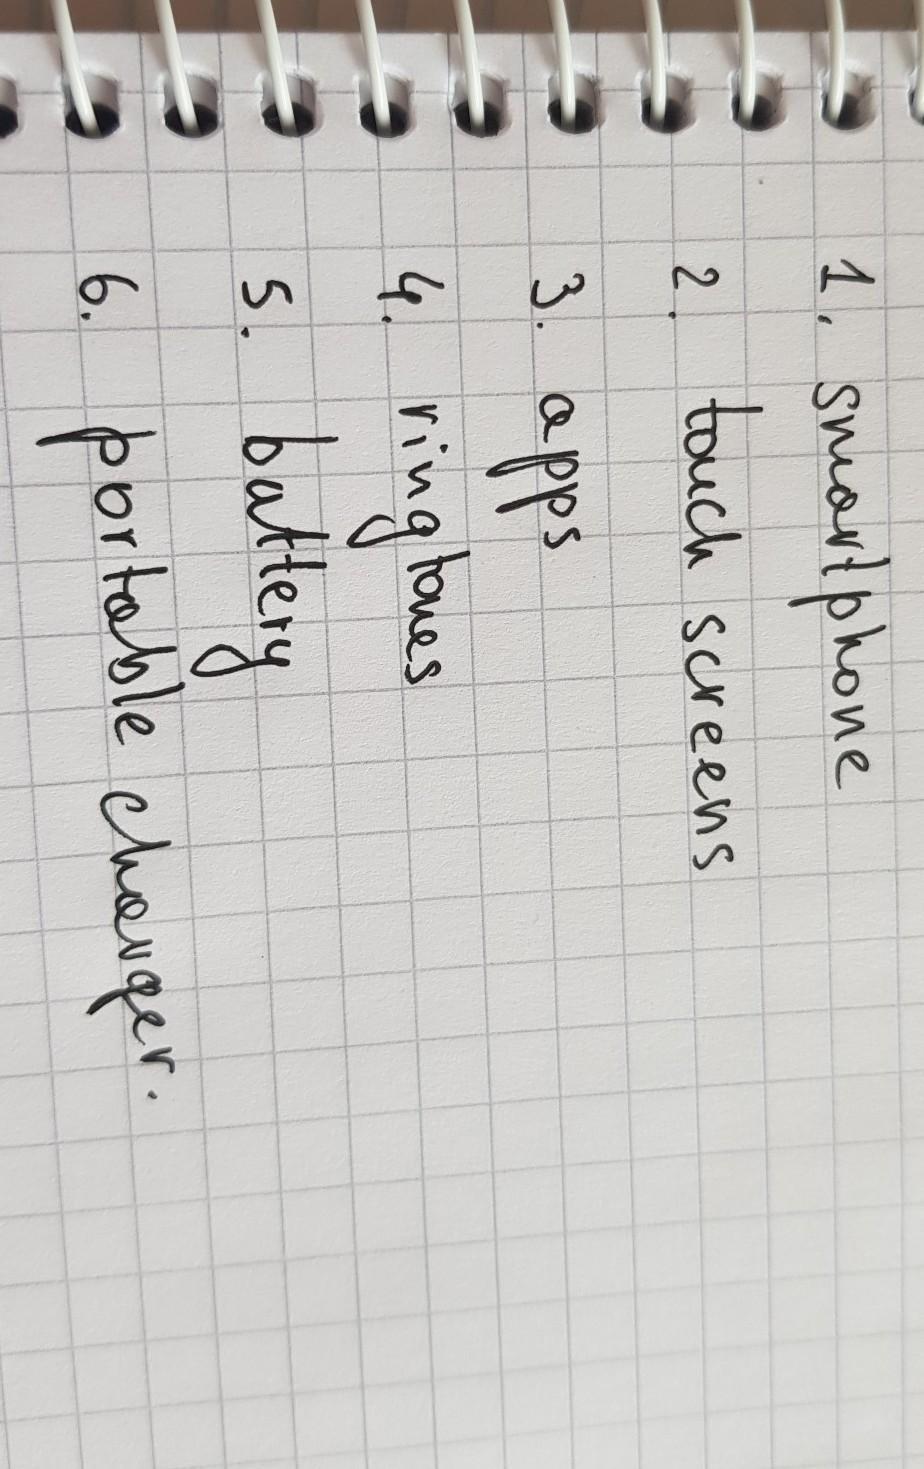 1. smartphone
2. touch screens
3. apps
4. ringtones
5. battery
6. portable charger.